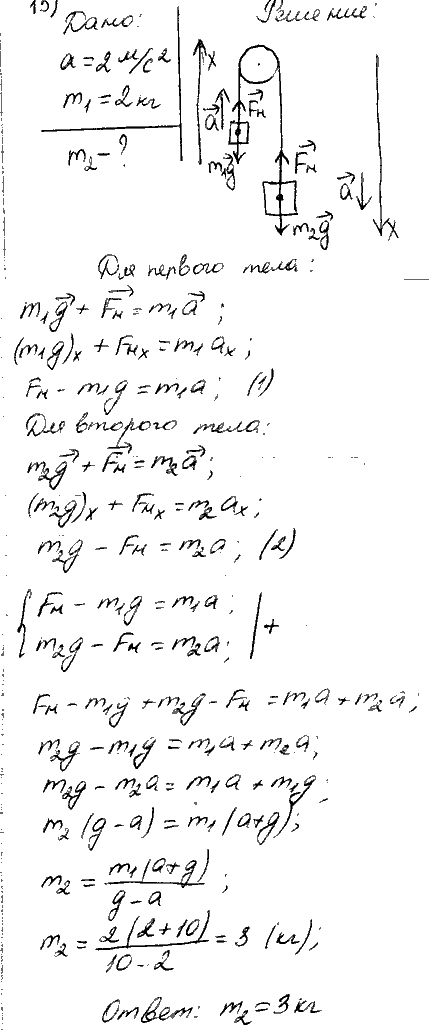 19)
Дано:
Решение:
a = 2 м/с²
m₁ = 2 кг
m₂ - ?
x
a⃗
F⃗н
m₁g⃗
F⃗н
m₂g⃗
a⃗
x
Для первого тела:
m₁g⃗ + F⃗н = m₁a⃗ ;
(m₁g)ₓ + Fнₓ = m₁aₓ;
Fн - m₁g = m₁a; (1)
Для второго тела:
m₂g⃗ + F⃗н = m₂a⃗;
(m₂g)ₓ + Fнₓ = m₂aₓ;
m₂g - Fн = m₂a; (2)
{ Fн - m₁g = m₁a; | +
m₂g - Fн = m₂a;
Fн - m₁g + m₂g - Fн = m₁a + m₂a;
m₂g - m₁g = m₁a + m₂a;
m₂g - m₂a = m₁a + m₁g;
m₂(g - a) = m₁(a+g);
m₂ = m₁(a+g) / g - a ;
m₂ = 2(2+10) / 10 - 2 = 3 (кг);
Ответ: m₂ = 3 кг